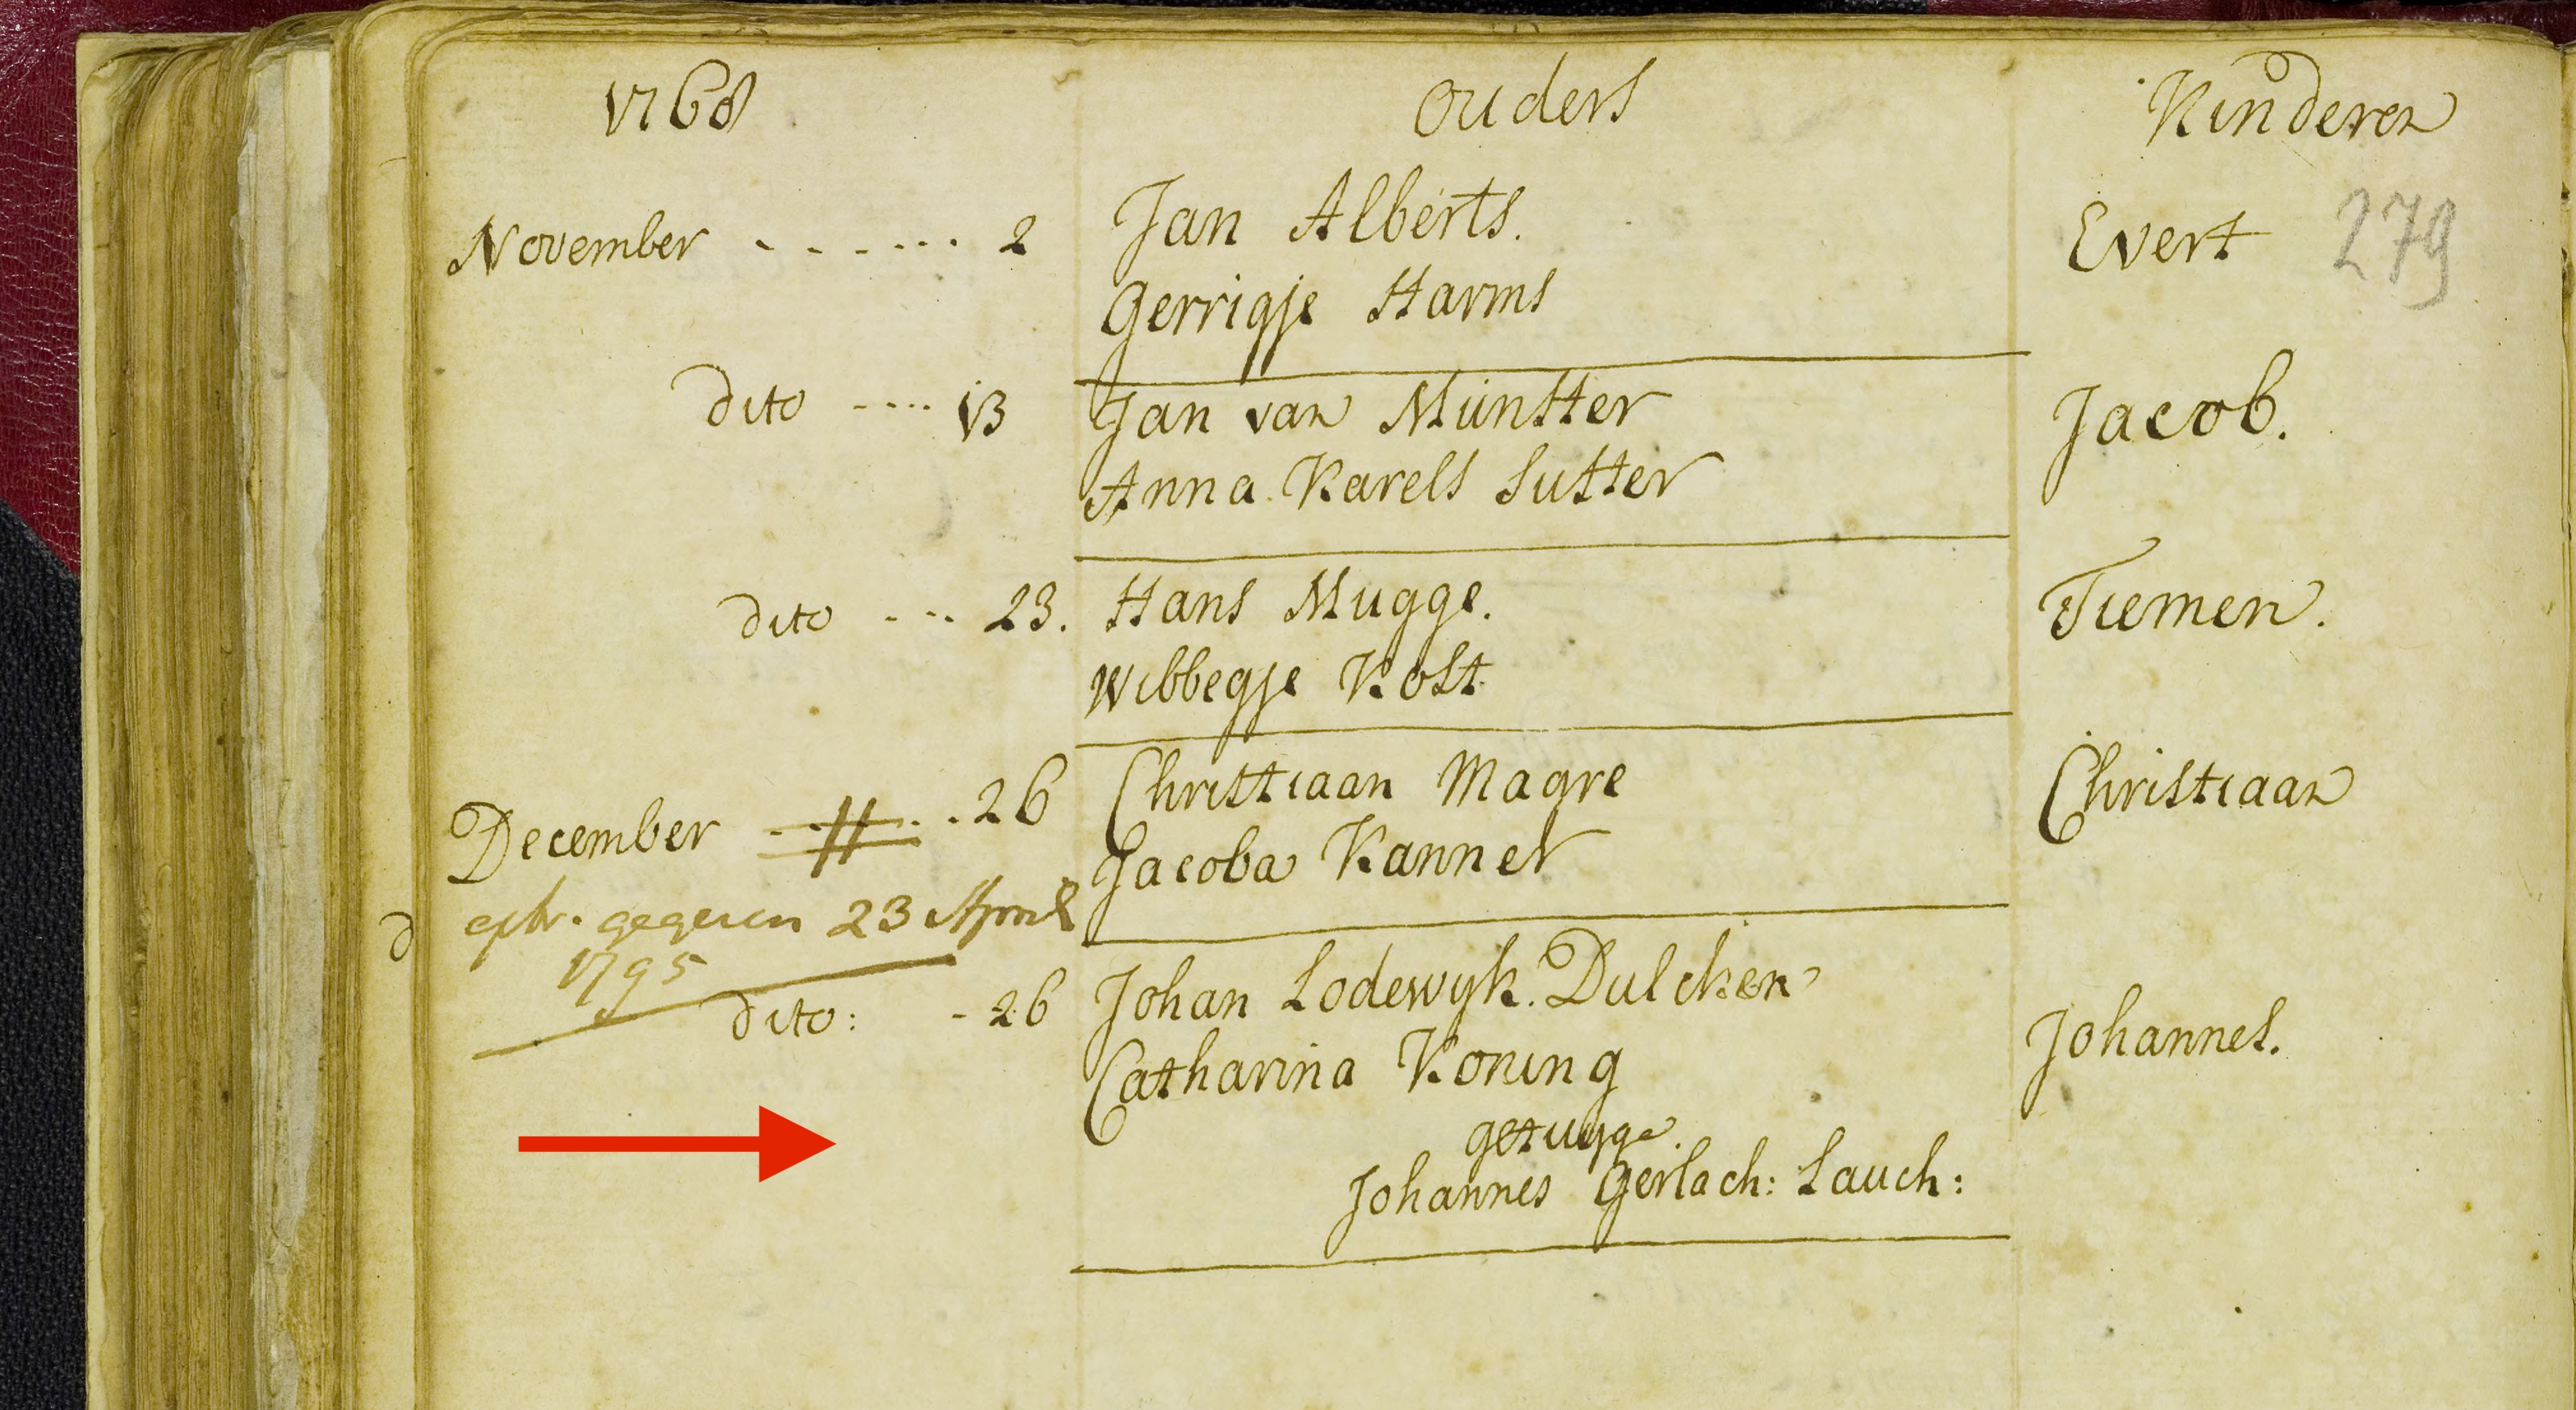 1768 ouders Kinderen
November - - - - - - - 2 Jan Alberts. Evert 279
Gerrigje Harms
dito - - - - 13 Jan van Munster Jacob.
Anna Karels Sutter
dito - - - 23. Hans Mugge. Tiemen.
Wibbegje Kost
December - - - - 26 Christiaan Magre Christiaan
Jacoba Kanner
gegeven 23 April
1795
d
dito: - 26 Johan Lodewyk Dulcken Johannes.
Catharina Koning
getuyge.
Johannes Gerlach: Lauch: